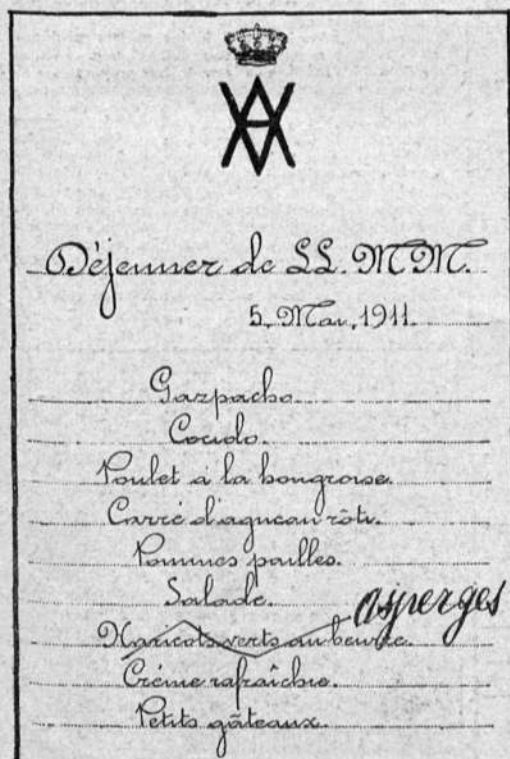 Déjeuner de LL. MM.
5. Mai. 1911.
Gazpacho.
Cocido.
Poulet à la hongroise.
Carré d'agneau rôti.
Pommes pailles.
Salade.
asperges
Haricots verts au beurre.
Crème rafraîchie.
Petits gâteaux.